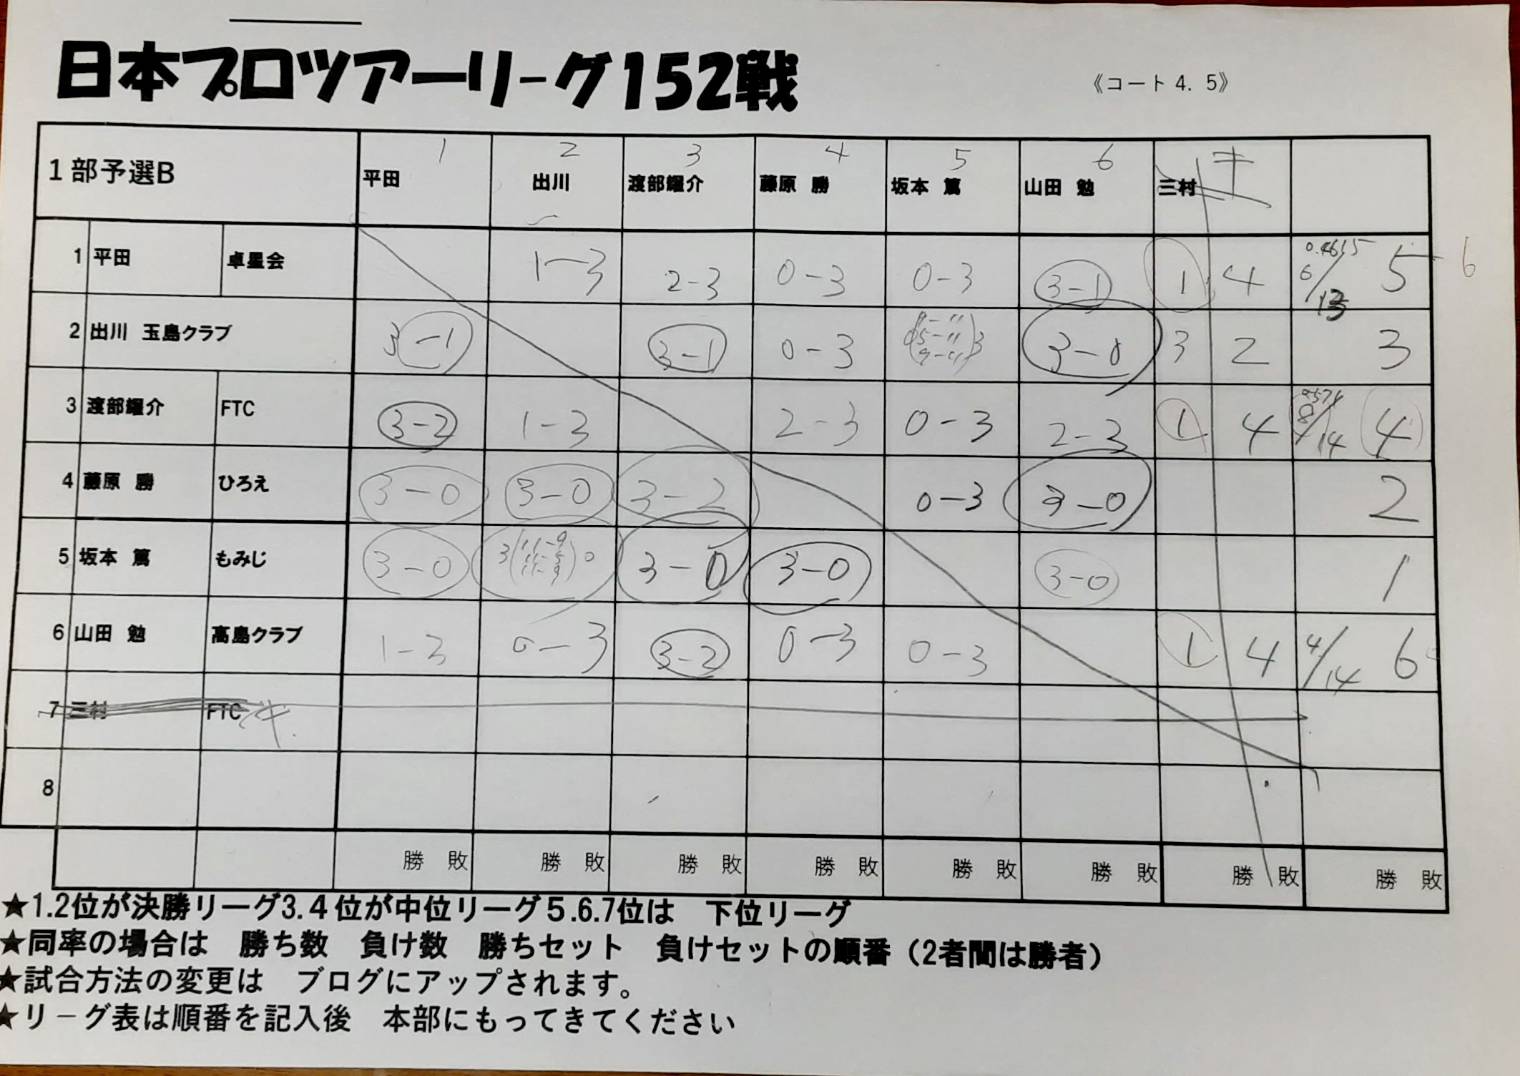 日本プロツアーリーグ152戦
《コート4. 5》
1部予選B 平田 1 出川 2 渡部耀介 3 藤原 勝 4 坂本 篤 5 山田 勉 6 三村 キ
1 平田 卓星会 1-3 2-3 0-3 0-3 3-1 1 4 0.4615 6/13 5 6
2 出川 玉島クラブ 3-1 3-1 0-3 3 3-0 3 2 3
3 渡部耀介 FTC 3-2 1-3 2-3 0-3 2-3 1 4 8/14 4
4 藤原 勝 ひろえ 3-0 3-0 3-2 0-3 3-0 2
5 坂本 篤 もみじ 3-0 3 0 3-0 3-0 3-0 1
6 山田 勉 高島クラブ 1-3 0-3 3-2 0-3 0-3 1 4 4/14 6
7 三村 FTC キ
8
勝 敗 勝 敗 勝 敗 勝 敗 勝 敗 勝 敗 勝 敗 勝 敗
★1.2位が決勝リーグ3.4位が中位リーグ5.6.7位は 下位リーグ
★同率の場合は 勝ち数 負け数 勝ちセット 負けセットの順番（2者間は勝者）
★試合方法の変更は ブログにアップされます。
★リーグ表は順番を記入後 本部にもってきてください